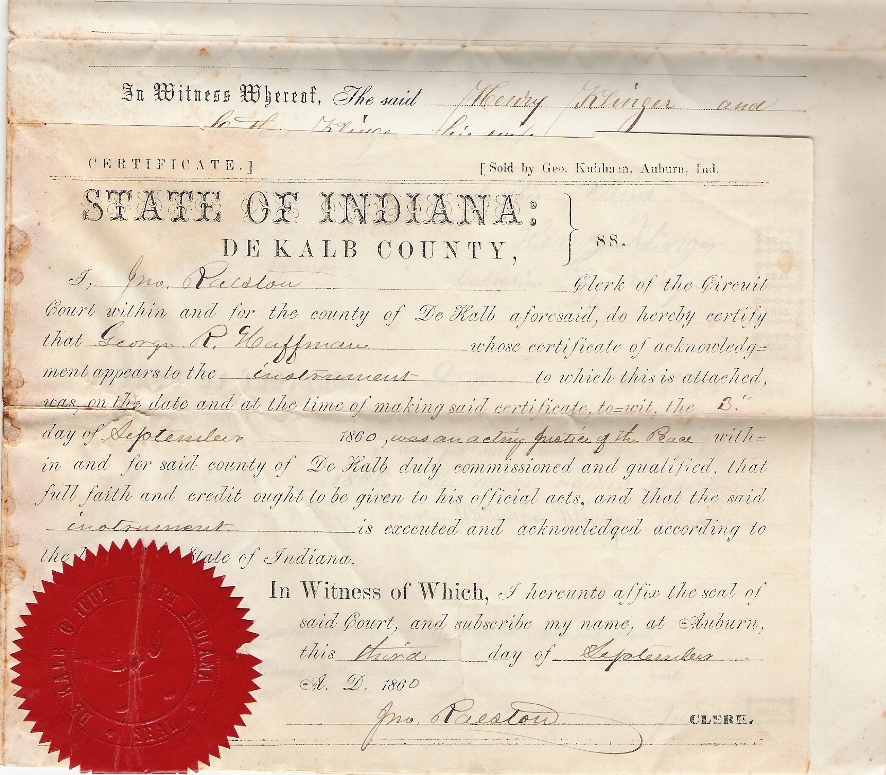 In Witness Whereof, The said Henry Klinger and
Klinger his wife
CERTIFICATE.]
[Sold by Geo. Kuhlman, Auburn, Ind.
STATE OF INDIANA:
DE KALB COUNTY, } ss.
I, Jno. Ralston Clerk of the Circuit
Court within and for the county of De Kalb aforesaid, do hereby certify
that George R. Huffman whose certificate of acknowledg=
ment appears to the instrument to which this is attached,
was, on the date and at the time of making said certificate, to=wit, the 3."
day of September 1860, was an acting Justice of the Peace with=
in and for said county of De Kalb duly commissioned and qualified, that
full faith and credit ought to be given to his official acts, and that the said
instrument is executed and acknowledged according to
the State of Indiana.
In Witness of Which, I hereunto affix the seal of
said Court, and subscribe my name, at Auburn,
this third day of September
A. D. 1860
Jno. Ralston CLERK.
DE KALB CIRCUIT COURT INDIANA
SEAL